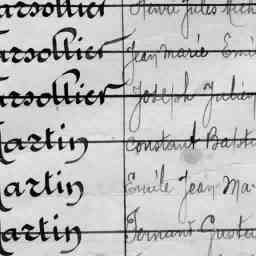 arsollier Henri Jules Mich
arsollier Jean Marie Emi
arsollier Joseph Julien
Martin Constant Bapti
Martin Emile Jean Ma
Martin Fernand Gusta